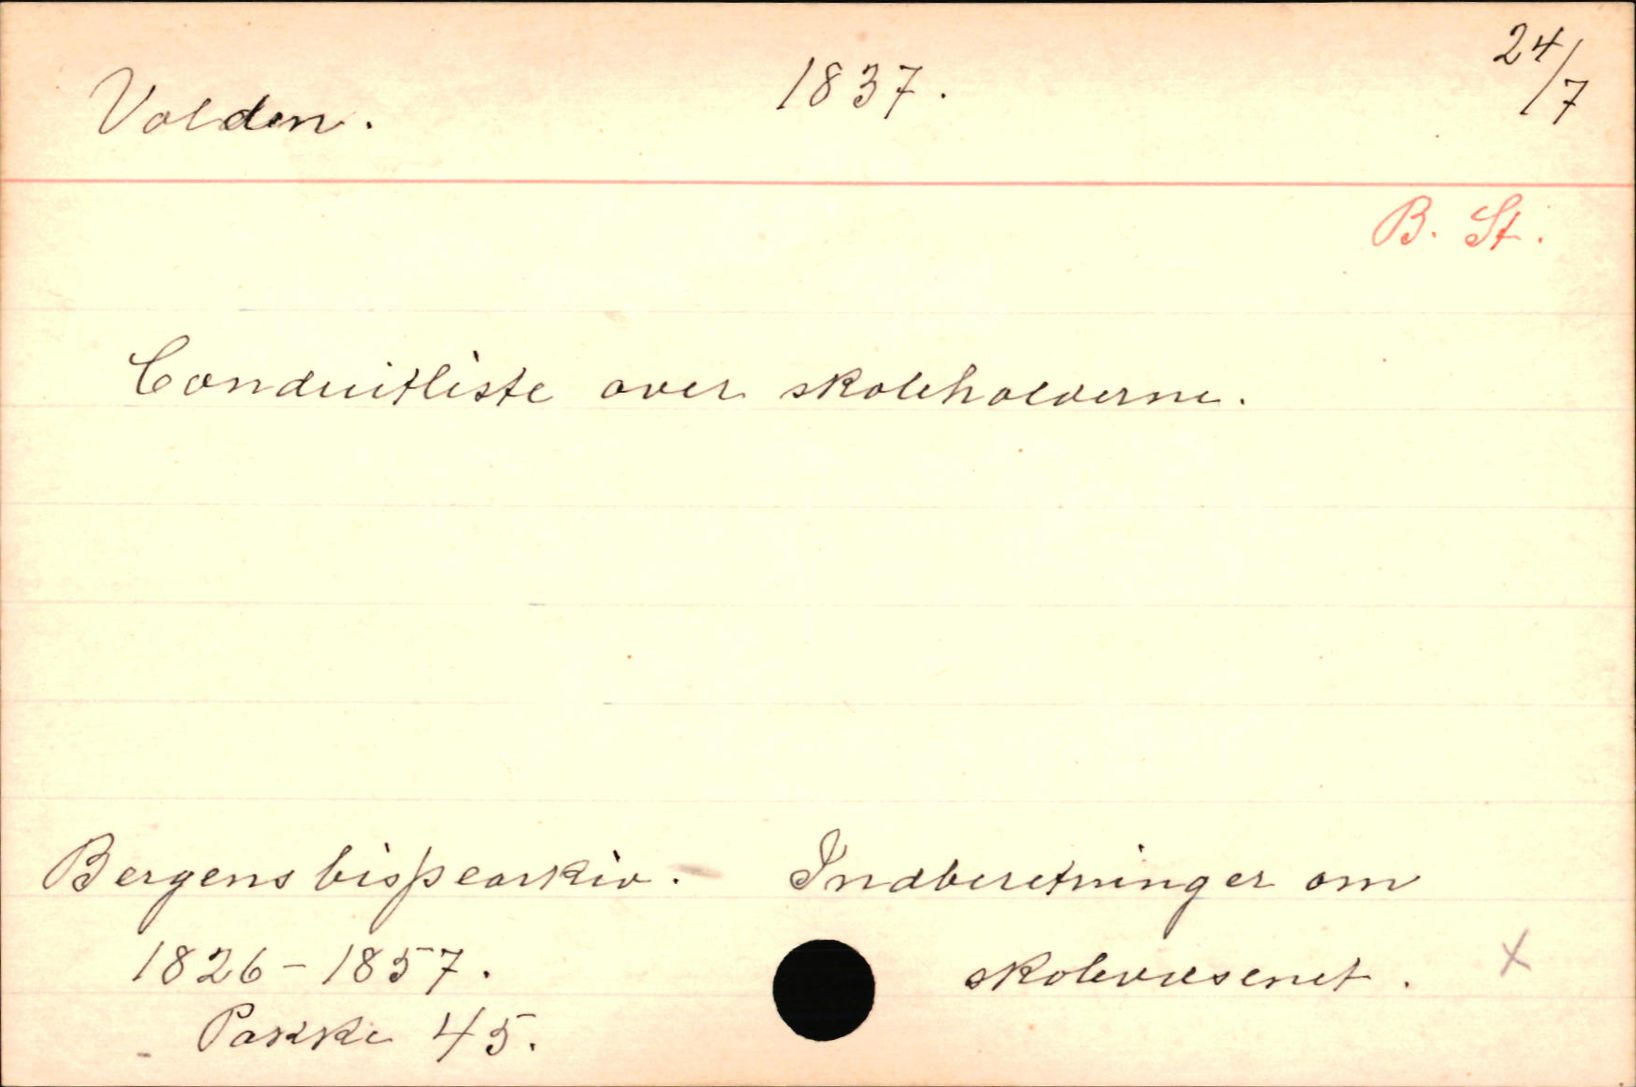 Volden. 1837. 24/7
B. St.
Conduitliste over skoleholderne.
Bergens bispearkiv. Indberetninger om
1826-1857. skolevæsenet. x
Pakke 45.